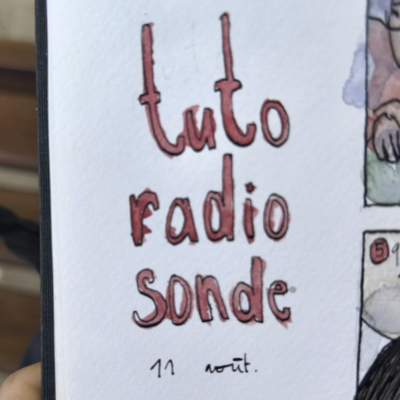 tuto
radio
sonde
11 août.
5